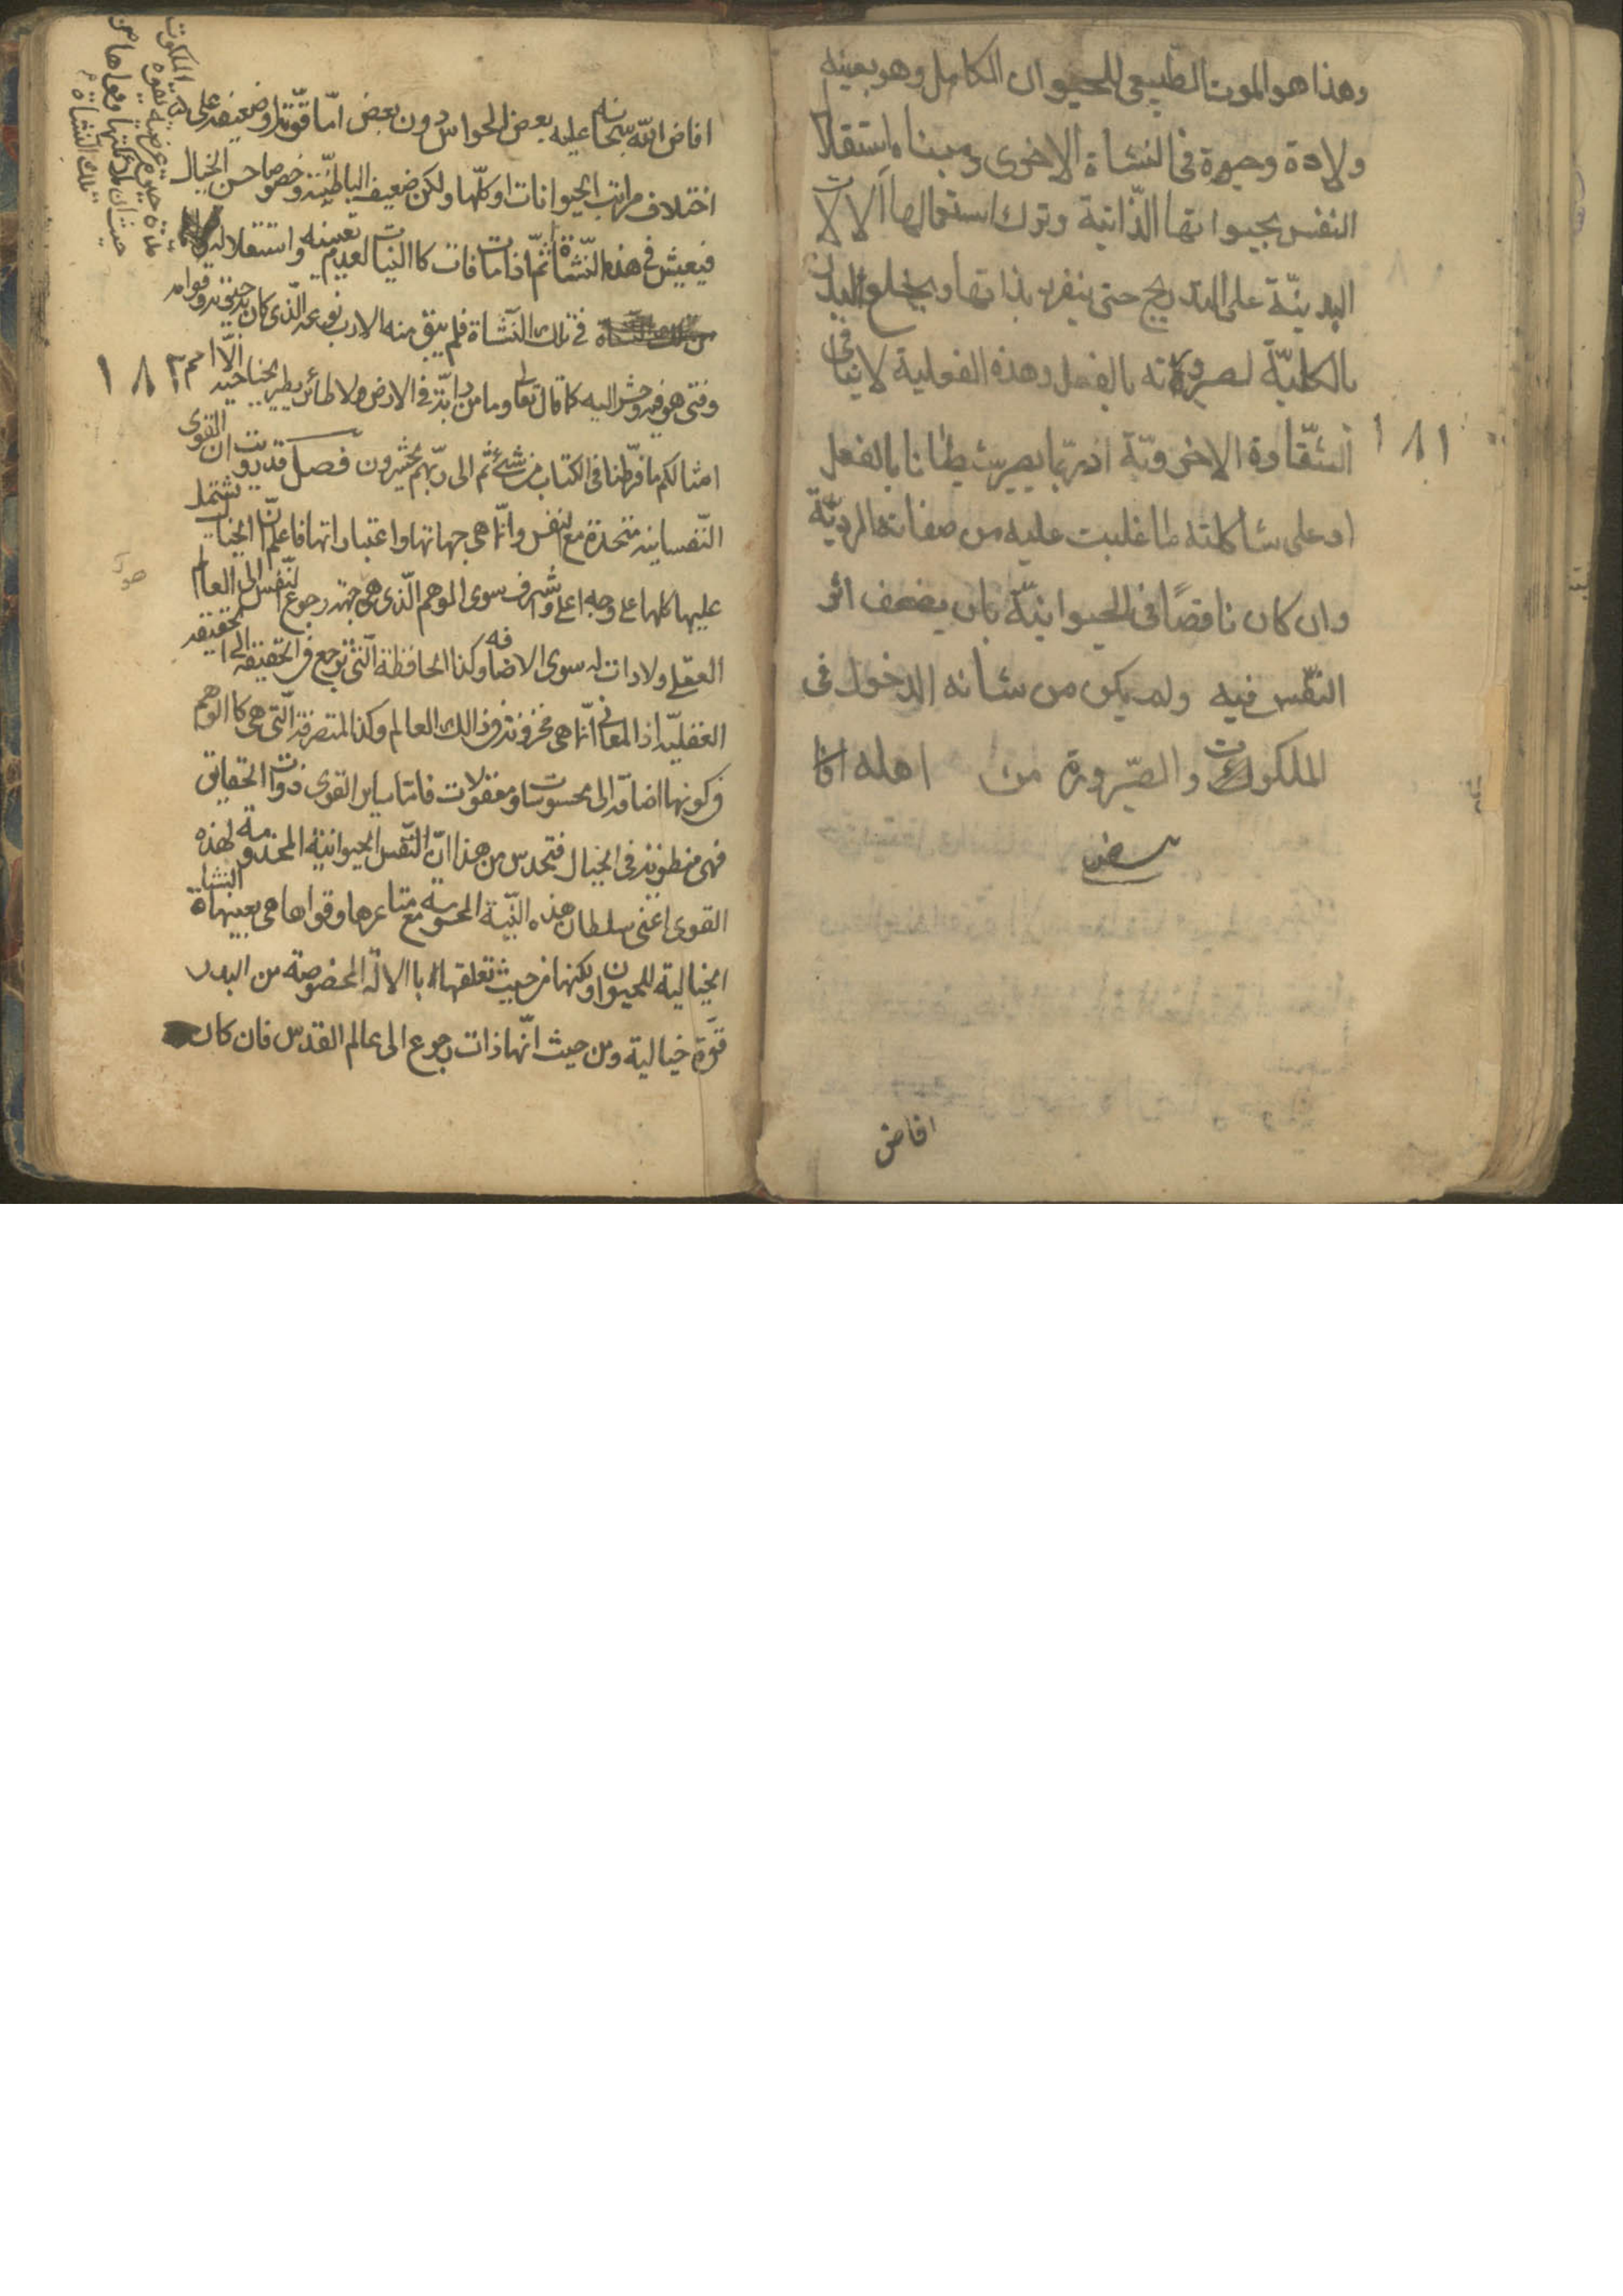 وهذا هو الموت الطبيعى للحيوان الكامل وهو بعينه
ولادة وحيوة فى النشاة الاخرى ومبناه استقلال
النفس بحيوانها الذّاتية وترك استعمالها آلالات
البدينّة على التدريج حتى ينفرد بذاتها ويخلع البدن
بالكليّة لصيرورته بالفعل وهذه الفعلية لا ينافى
الشّقاوة الاخرويّة اذ ربّما يصير شيطانا بالفعل
او على شاكلته ما غلبت عليه من صفاته الرديّة
وان كان ناقصًا فى الحيوانيّة بان يضعف اثر
النّفس فيه ولم يكن من شانه الدخول فى
الملكوت والصّيرورة من اهله
افاض
١٨١
افاض اللّه سبحانه عليه بعض الحواس دون بعض امّا قويّة او ضعيفة على
اختلاف مراتب الحيوانات او كلّها ولكن ضعيف الباطنيّة وخصوصا حس الخيال
فيعيش فى هذه النّشاة ثمّ اذا مات فات كالنبات لعدم تعينه واستقلاله
فى تلك النّشاة فلم يبق منه الا رب نوعه الّذى كان به حيوته وقوامه
وفنى هو فيه وحشر اليه كما قال تعا وما من دابّة فى الارض ولا طائر يطير بجناحيه الّا امم
امثالكم ما فرّطنا فى الكتاب من شئ ثم الى ربّهم يحشرون فصل قد دريت ان القوى
النّفسانية متحدة مع النفس وانّما هى جهاتها واعتباراتها فاعلم انّ الخيال يشتمل
عليها كلها على وجه اعلى واشرف سوى الوهم الّذى هى جهة رجوع النّفس الى العالم
العقلى ولا ذات له سوى الاضافه وكذا الحافظة الّتى ترجع فى الحقيقة الى الحقيقة
العقليّة اذ المعانى انّما هى مخزونة فى ذالك العالم وكذا المتصرفة الّتى هى كالوهم
فى كونها اضافة الى محسوسات او معقولات فامّا ساير القوى ذوات الحقايق
فهى منطوية فى الخيال فتحدس من هذا انّ النّفس الحيوانيّة المخدومة لهذه
القوى اعنى سلطان هذه البنّية المحسوسة مع مشاعرها وقواها هى بعينها النشاة
الخيالية للحيوان ولكنها من حيث تعلقها بالالة المخصوصة من البدن
قوّة خيالية ومن حيث انّها ذات رجوع الى عالم القدس فان كان
١٨٢
تلك النشاة